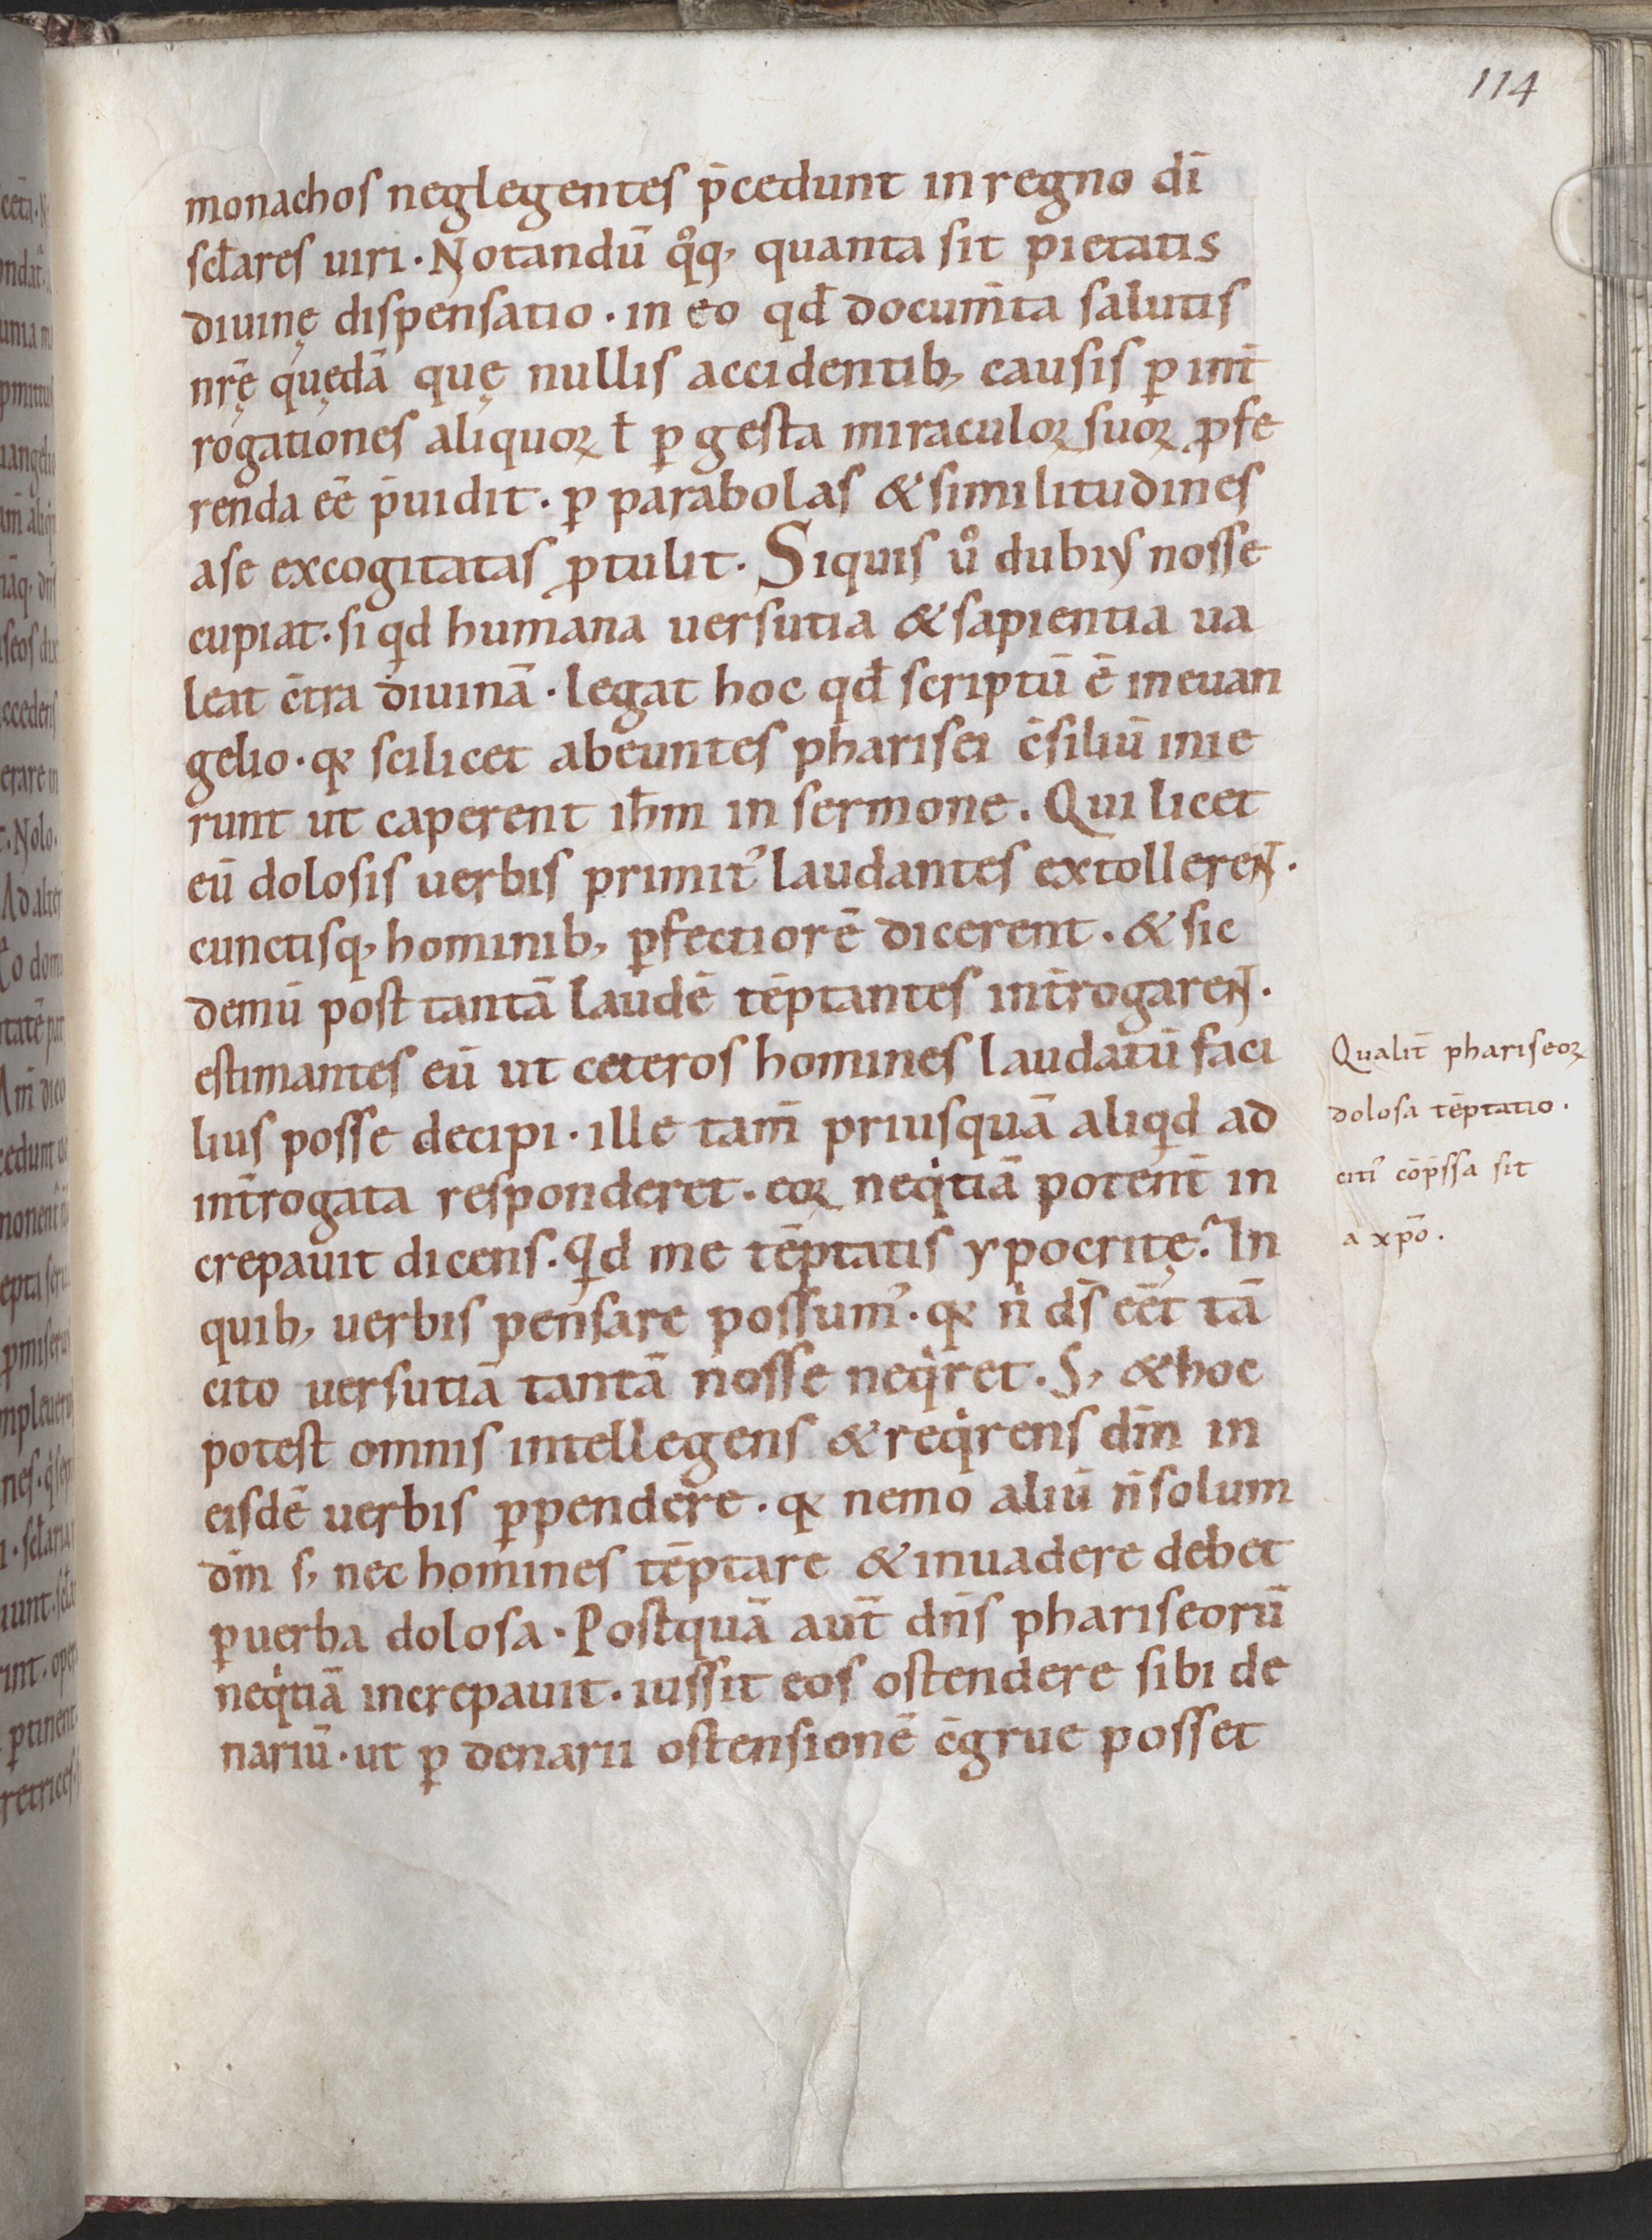 114
monachos neglegentes p̄cedunt in regno dī
scƚares uiri. Notandū qͦq, quanta sit pietatis
diuinę dispensatio. in eo qđ docum̄ta salutis
nrę̄ quędā quę nullis accidentib, causis ꝑ int̄
rogationes aliquoꝝ ƚ ꝑ gesta miraculoꝝ suoꝝ ꝓfe
renda eē p̄uidit. ꝑ parabolas & similitudines
a se excogitatas ꝓtulit. Siquis uͦ dubiꝰ nosse
cupiat. si qͥd humana uersutia & sapientia ua
leat c̄tra diuinā. legat hoc qđ scriptū ē in euan
gelio. qꝫ scilicet abeuntes pharisei c̄siliū inie
runt ut caperent ihm̄ in sermone. Qui licet
eū dolosis uerbis primit᾽ laudantes extollerent.
cunctisq, hominib, ꝑfectiorē dicerent. & sic
demū post tantā laudē tēptantes int̄rogarent.
estimantes eū ut ceteros homines laudatū faci
lius posse decipi. ille tam̄ priusquā aliqͥd ad
int̄rogata responderet. eoꝝ neqͥtiā potent̄ in
crepauit dicens. Qͥd me tēptatis ypocritę? In
quib, uerbis pensare possum᾽. qꝫ nͥ ds̄ eēt tā
cito uersutiā tantā nosse neqͥret. S, & hoc
potest omnis intellegens & reqͥrens dm̄ in
eisdē uerbis ꝑpendere. qꝫ nemo aliū n̄ solum
dm̄ s, nec homines tēptare & inuadere debet
ꝑ uerba dolosa. Postquā aut̄ dn̄s phariseorū
neqͥtiā increpauit. iussit eos ostendere sibi de
nariū. ut ꝑ denarii ostensionē c̄grue posset
Qualit̄ phariseoꝝ
dolosa tēptatio.
cit᾽ cōp̄ssa sit
a xp̄o.